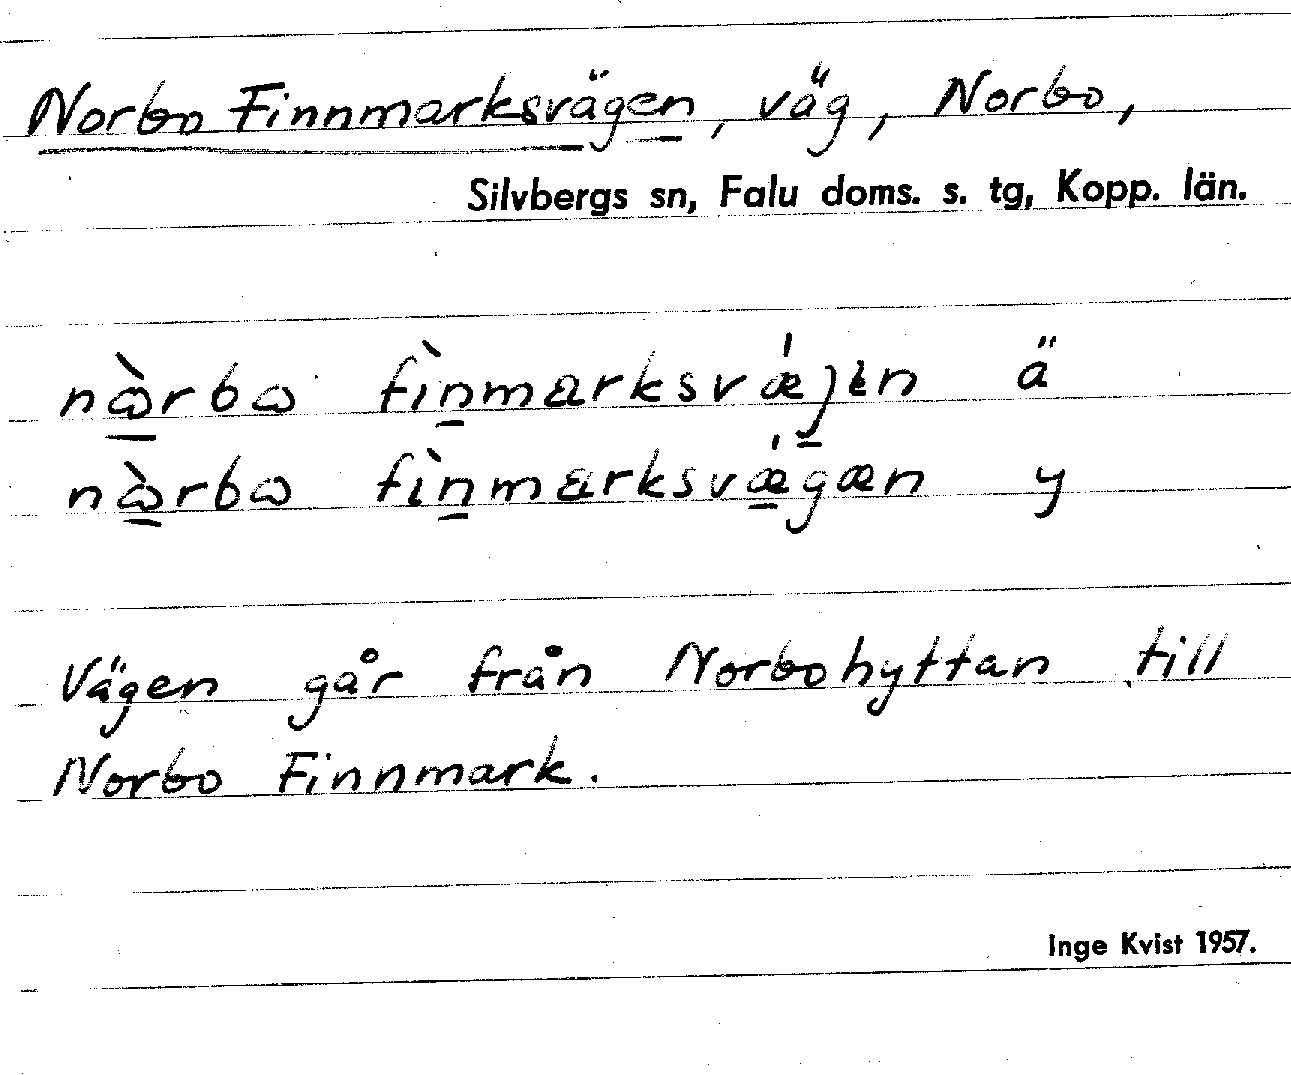 Norbo Finnmarksvägen, väg, Norbo,
Silvbergs sn, Falu doms. s. tg, Kopp. län.
nɷ̀rbɷ fìnmarksvǽjɛn ä
nɷ̀rbɷ fìnmarksvǽgæn y
Vägen går från Norbohyttan till
Norbo Finnmark.
Inge Kvist 1957.